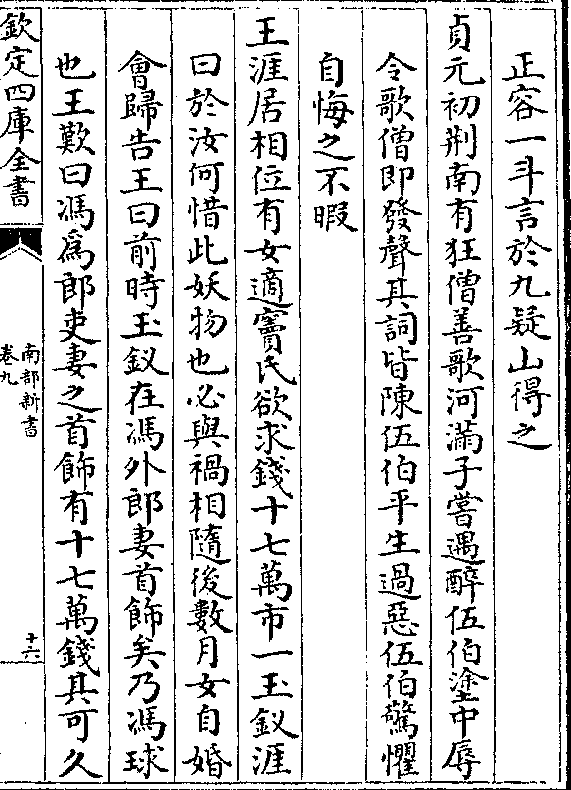 正容一斗言於九疑山得之
貞元初荆南有狂僧善歌河滿子嘗遇醉伍伯塗中辱
令歌僧即發聲其詞皆陳伍伯平生過惡伍伯驚懼
自悔之不暇
王涯居相位有女適竇氏欲求錢十七萬市一玉釵涯
曰於汝何惜此妖物也必與禍相隨後數月女自婚
會歸告王曰前時玉釵在馮外郎妻首飾矣乃馮球
也王歎曰馮爲郎吏妻之首飾有十七萬錢其可久
欽定四庫全書
南部新書
卷九
十六